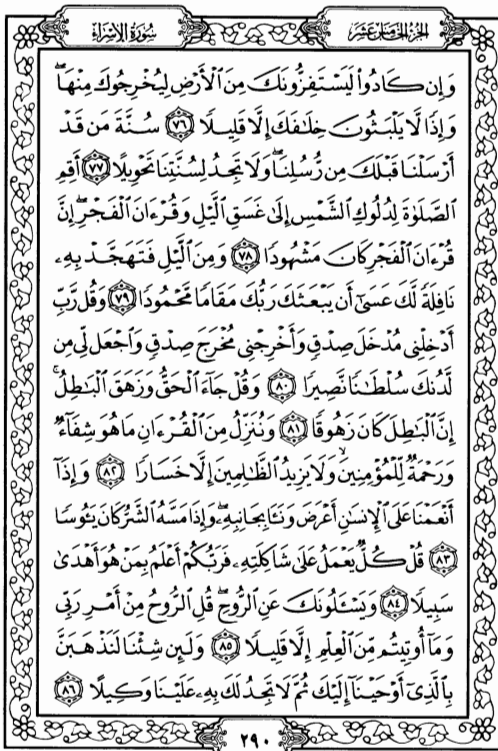 سُورَةُ الإِسْرَاءِ
الجُزْءُ الخَامِسَ عَشَرَ
وَإِن كَادُواْ لَيَسْتَفِزُّونَكَ مِنَ ٱلْأَرْضِ لِيُخْرِجُوكَ مِنْهَاۖ
وَإِذًا لَّا يَلْبَثُونَ خِلَٰفَكَ إِلَّا قَلِيلًا ۝٧٦ سُنَّةَ مَن قَدْ
أَرْسَلْنَا قَبْلَكَ مِن رُّسُلِنَاۖ وَلَا تَجِدُ لِسُنَّتِنَا تَحْوِيلًا ۝٧٧ أَقِمِ
ٱلصَّلَوٰةَ لِدُلُوكِ ٱلشَّمْسِ إِلَىٰ غَسَقِ ٱلَّيْلِ وَقُرْءَانَ ٱلْفَجْرِۖ إِنَّ
قُرْءَانَ ٱلْفَجْرِ كَانَ مَشْهُودًا ۝٧٨ وَمِنَ ٱلَّيْلِ فَتَهَجَّدْ بِهِۦ
نَافِلَةً لَّكَ عَسَىٰٓ أَن يَبْعَثَكَ رَبُّكَ مَقَامًا مَّحْمُودًا ۝٧٩ وَقُل رَّبِّ
أَدْخِلْنِى مُدْخَلَ صِدْقٍ وَأَخْرِجْنِى مُخْرَجَ صِدْقٍ وَٱجْعَل لِّى مِن
لَّدُنكَ سُلْطَٰنًا نَّصِيرًا ۝٨٠ وَقُلْ جَآءَ ٱلْحَقُّ وَزَهَقَ ٱلْبَٰطِلُۚ
إِنَّ ٱلْبَٰطِلَ كَانَ زَهُوقًا ۝٨١ وَنُنَزِّلُ مِنَ ٱلْقُرْءَانِ مَا هُوَ شِفَآءٌ
وَرَحْمَةٌ لِّلْمُؤْمِنِينَۙ وَلَا يَزِيدُ ٱلظَّٰلِمِينَ إِلَّا خَسَارًا ۝٨٢ وَإِذَآ
أَنْعَمْنَا عَلَى ٱلْإِنسَٰنِ أَعْرَضَ وَنَـَٔا بِجَانِبِهِۦۖ وَإِذَا مَسَّهُ ٱلشَّرُّ كَانَ يَـُٔوسًا
۝٨٣ قُلْ كُلٌّ يَعْمَلُ عَلَىٰ شَاكِلَتِهِۦ فَرَبُّكُمْ أَعْلَمُ بِمَنْ هُوَ أَهْدَىٰ
سَبِيلًا ۝٨٤ وَيَسْـَٔلُونَكَ عَنِ ٱلرُّوحِۖ قُلِ ٱلرُّوحُ مِنْ أَمْرِ رَبِّى
وَمَآ أُوتِيتُم مِّنَ ٱلْعِلْمِ إِلَّا قَلِيلًا ۝٨٥ وَلَئِن شِئْنَا لَنَذْهَبَنَّ
بِٱلَّذِىٓ أَوْحَيْنَآ إِلَيْكَ ثُمَّ لَا تَجِدُ لَكَ بِهِۦ عَلَيْنَا وَكِيلًا ۝٨٦
٢٩٠